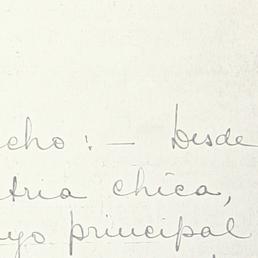 cho: — Desde
tria chica,
yo principal